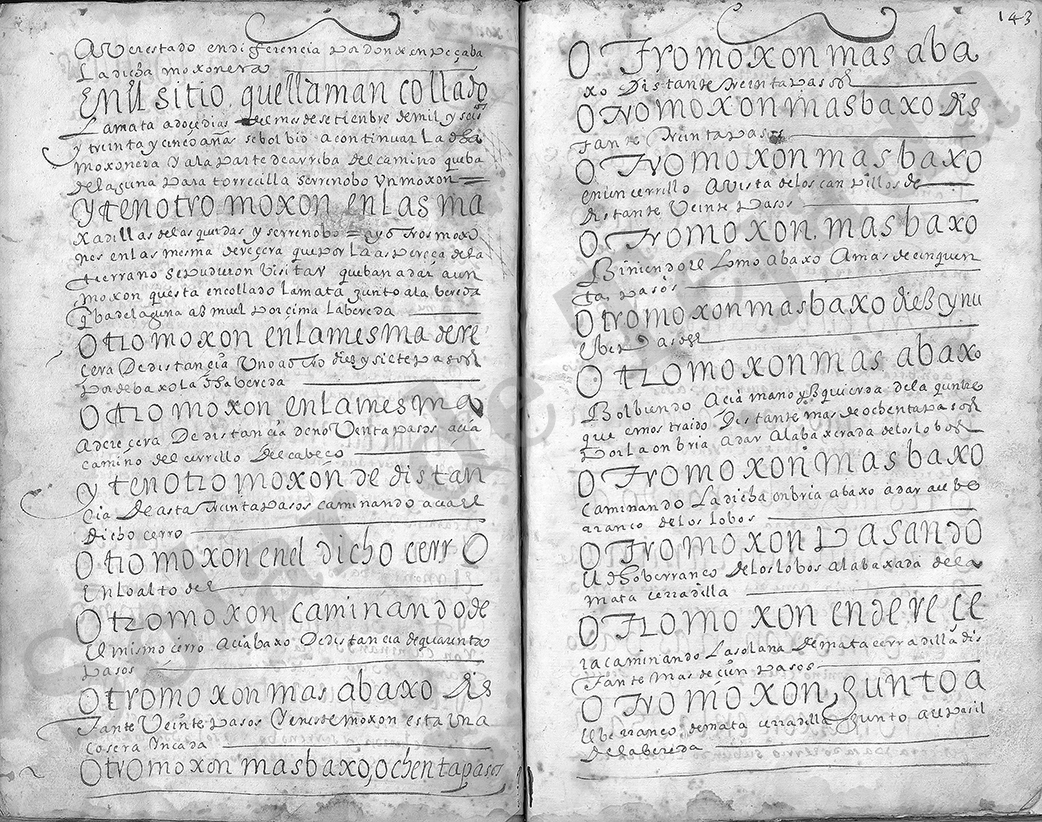 aver estado en diferencia por donde enpeçaba
La dicha moxonera
En el sitio que llaman collado
La mata a doce dias del mes de setienbre de mil y seis
y treinta y cinco años se bolbio a continuar La dha
moxonera y a la parte de arriba del camino que ba
de laguna para torrecilla se rrenobo un moxon
Yten otro moxon en las ma
xadillas de las y se rrenobo ay otros moxo
nes en las mesma dereçera que por La aspereça de la
tierra no se pudieron Visitar que ban a dar a un
moxon que está en collado La mata junto a la vereda
q ba de laguna a por çima La bereda
Otro moxon en la mesma dere
çera De distancia Uno a otro diez y siete pasos
Por debaxo la dha bereda
Otro moxon en la mesma
a dereçera De distancia de noventa pasos acia
camino del cerrillo Del cabeço
Yten otro moxon de distan
cia De asta treinta pasos caminando acia el
dicho cerro
Otro moxon en el dicho cerro
En lo alto del
Otro moxon caminando de
el mismo cerro acia baxo De distancia de quarenta
pasos
Otro moxon mas abaxo dis
tante Veinte pasos y en este moxon esta una
incada
Otro moxon mas baxo, ochenta pasos
143
Otro moxon mas aba
xo Distante treinta pasos
Otro moxon mas baxo dis
tante treinta pasos
Otro moxon mas baxo
en un cerrillo a vista de los canpillos
distante Veinte pasos
Otro moxon mas baxo
Biniendo el Lomo abaxo a mas de cinquen
ta pasos
Otro moxon mas baxo diez y nu
ebe pasos
Otro moxon mas abaxo
Bolbiendo acia mano yzquierda de la
que emos traido Distante mas de ochenta pasos
por la onbria a dar a la baxerada de los lobos
Otro moxon mas baxo
caminando La dicha onbria abaxo a dar al be
rranco de los lobos
Otro moxon pasando
el dho berranco de los lobos a la baxada de la
mata cerradilla
Otro moxon en dereçe
ra caminando La solana de mata cerradilla dis
tante mas de cien pasos
Otro moxon, junto a
el berranco de mata cerradilla junto al
de la bereda